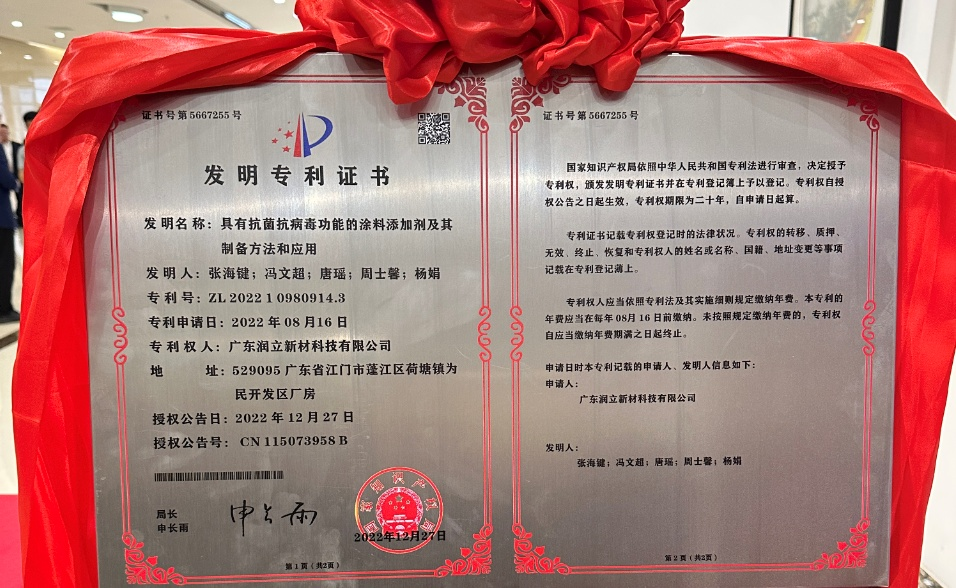 证书号第5667255号
发明专利证书
发明名称：具有抗菌抗病毒功能的涂料添加剂及其
制备方法和应用
发明人：张海键；冯文超；唐瑶；周士馨；杨娟
专利号：ZL 2022 1 0980914.3
专利申请日：2022年08月16日
专利权人：广东润立新材科技有限公司
地址：529095 广东省江门市蓬江区荷塘镇为
民开发区厂房
授权公告日：2022年12月27日
授权公告号：CN 115073958 B
局长
申长雨
申长雨
国家知识产权局
2022年12月27日
第1页（共2页）
证书号第5667255号
国家知识产权局依照中华人民共和国专利法进行审查，决定授予
专利权，颁发发明专利证书并在专利登记簿上予以登记。专利权自授
权公告之日起生效，专利权期限为二十年，自申请日起算。
专利证书记载专利权登记时的法律状况。专利权的转移、质押、
无效、终止、恢复和专利权人的姓名或名称、国籍、地址变更等事项
记载在专利登记簿上。
专利权人应当依照专利法及其实施细则规定缴纳年费。本专利的
年费应当在每年08月16日前缴纳。未按照规定缴纳年费的，专利权
自应当缴纳年费期满之日起终止。
申请日时本专利记载的申请人、发明人信息如下：
申请人：
广东润立新材科技有限公司
发明人：
张海键；冯文超；唐瑶；周士馨；杨娟
第2页（共2页）